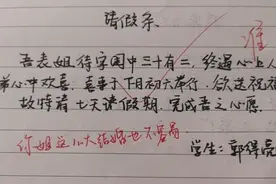 请假条
准
吾表姐待字闺中三十有二,终遇心上人
弟心中欢喜,喜事于下月初六举行,欲送祝福
故特请七天请假期,完成吾之心愿
你姐这么大结婚也不容易
学生:郭得亮